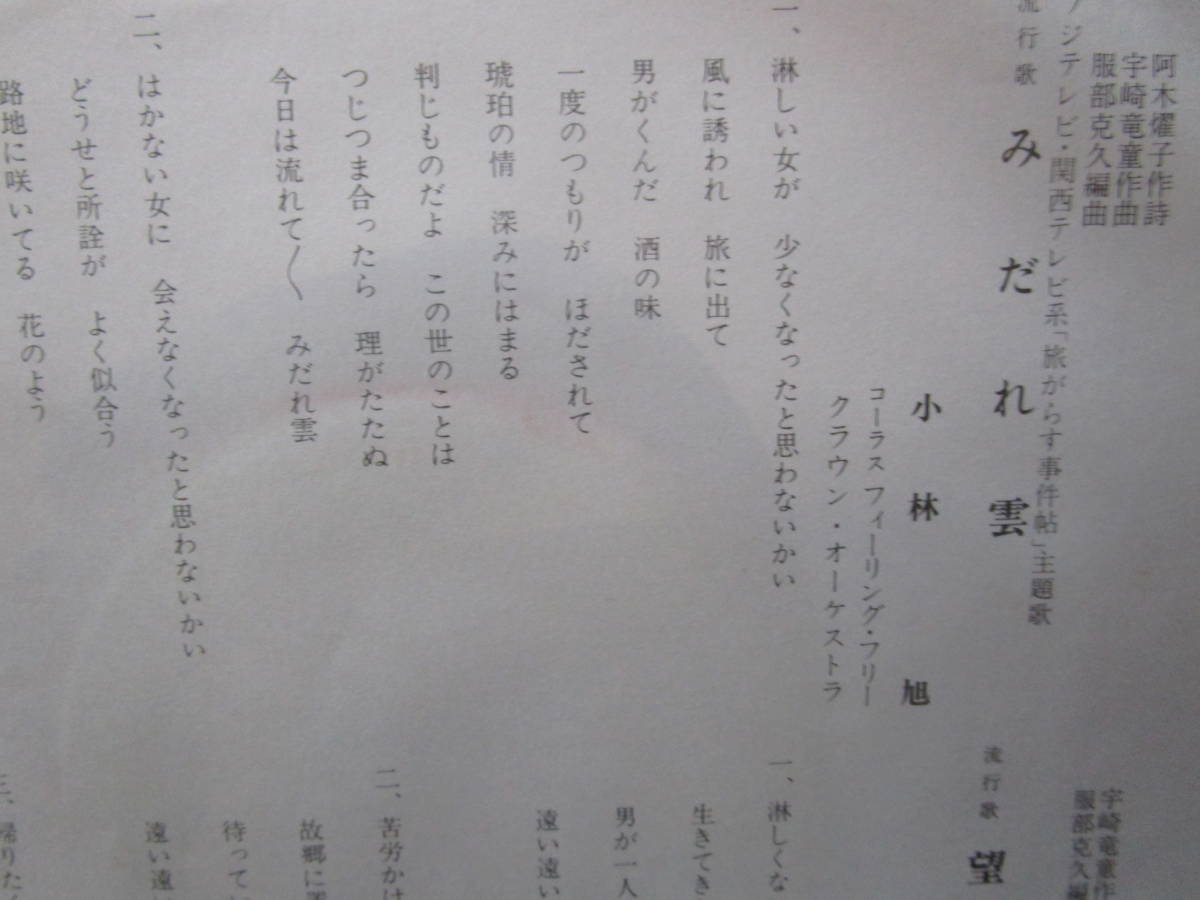 阿木燿子作詩
宇崎竜童作曲
服部克久編曲
ジテレビ・関西テレビ系「旅がらす事件帖」主題歌
流行歌
みだれ雲
小林旭
コーラス フィーリング・フリー
クラウン・オーケストラ
一、淋しい女が 少なくなったと思わないかい
風に誘われ 旅に出て
男がくんだ 酒の味
一度のつもりが ほだされて
琥珀の情 深みにはまる
判じものだよ この世のことは
つじつま合ったら 理がたたぬ
今日は流れて〳〵 みだれ雲
二、はかない女に 会えなくなったと思わないかい
どうせと所詮が よく似合う
路地に咲いてる 花のよう
宇崎竜童作
服部克久編
流行歌
望
一、淋しくな
生きてき
男が一人
遠い遠い
二、苦労かけ
故郷に
待って
遠い遠い
三、帰りた